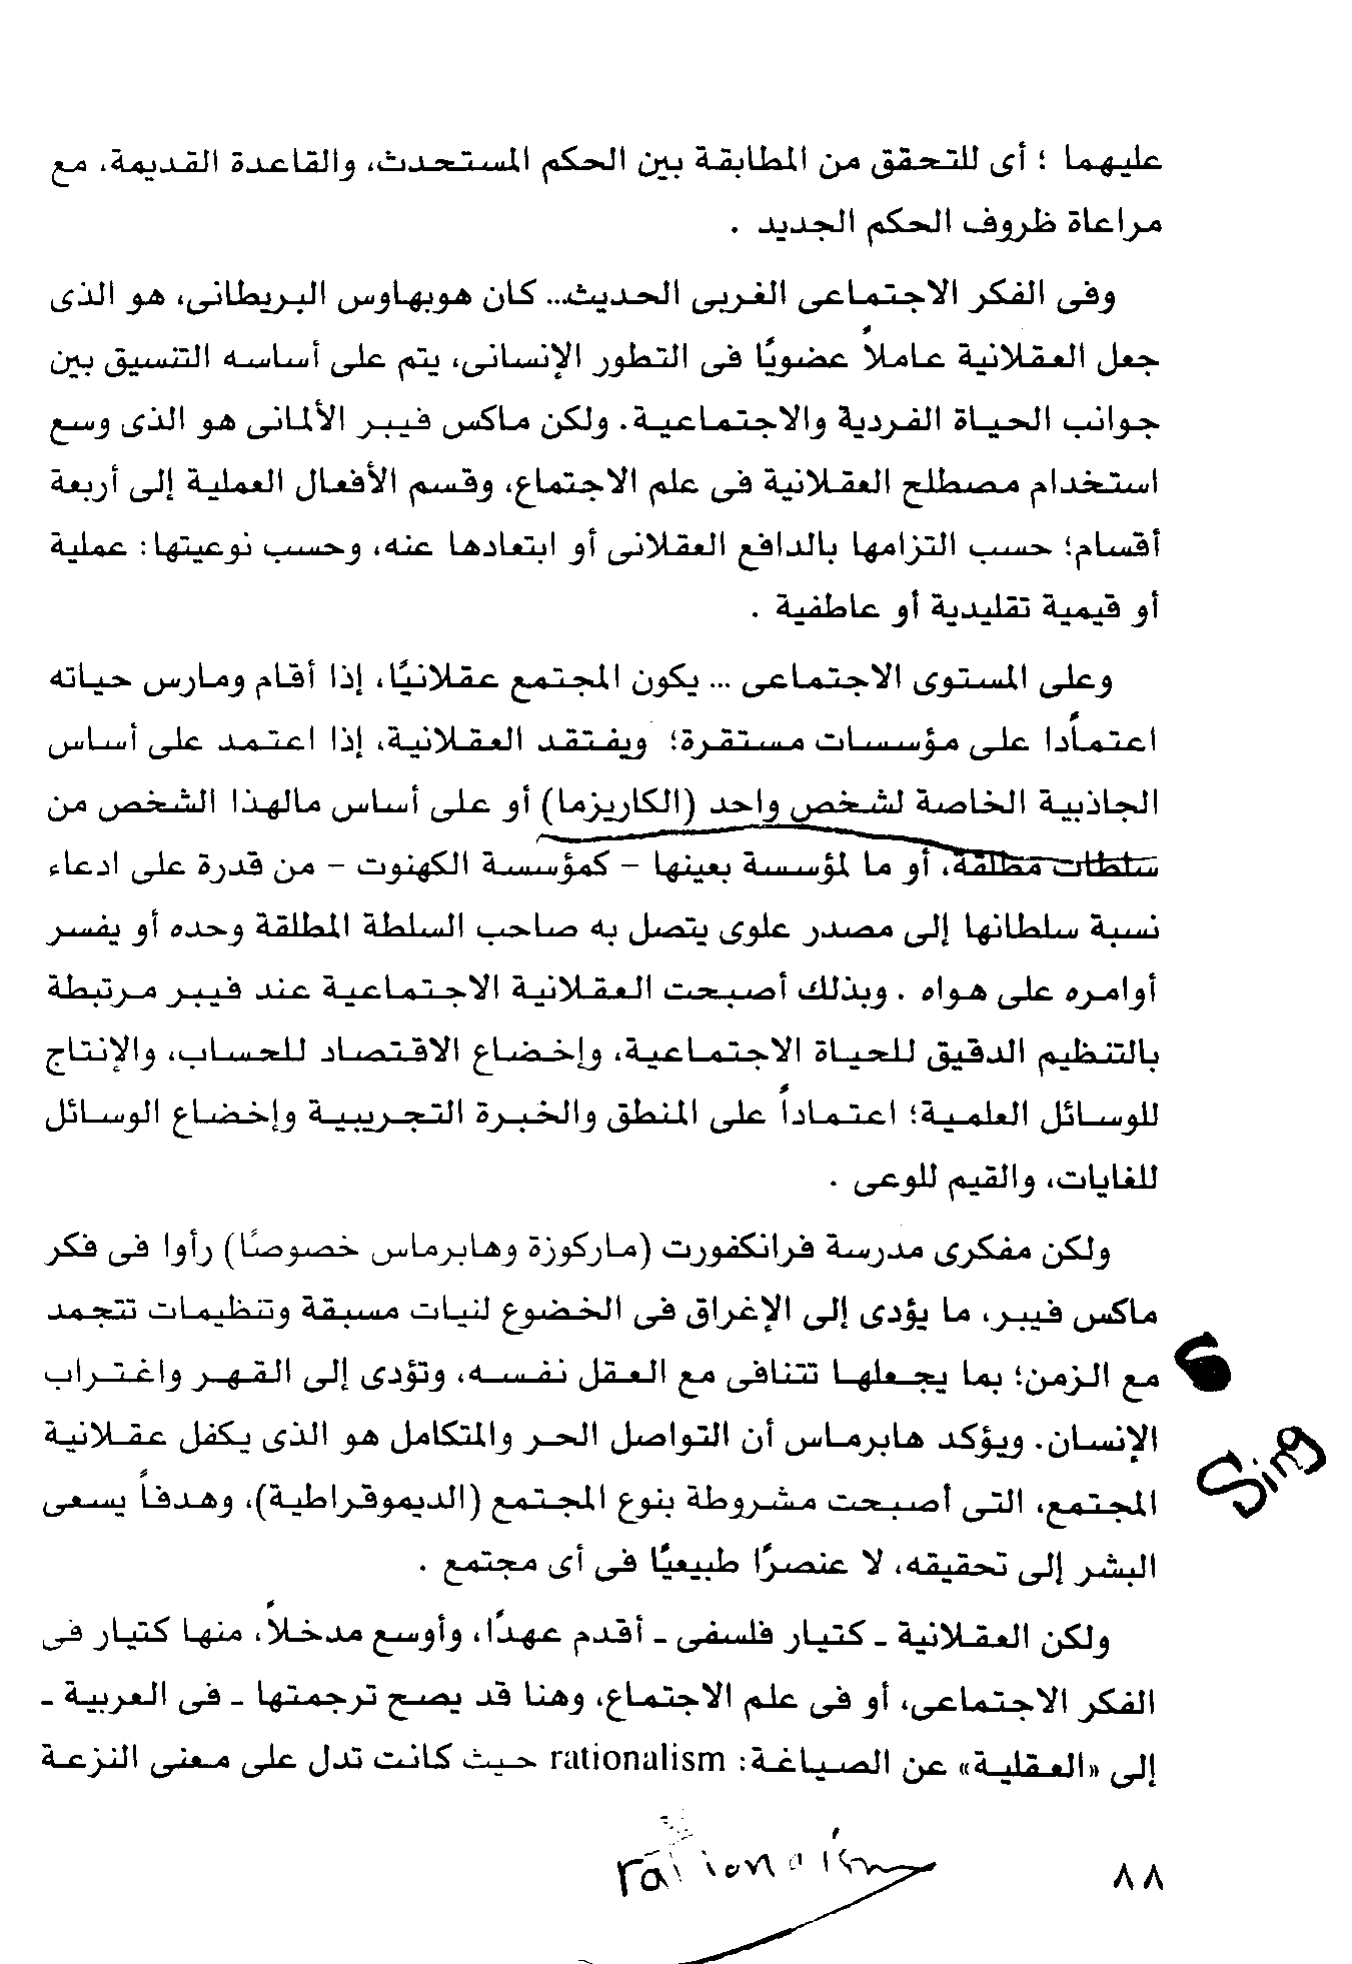 عليهما ؛ أى للتحقق من المطابقة بين الحكم المستحدث، والقاعدة القديمة، مع
مراعاة ظروف الحكم الجديد .
وفى الفكر الاجتماعى الغربى الحديث... كان هوبهاوس البريطانى، هو الذى
جعل العقلانية عاملاً عضويًا فى التطور الإنسانى، يتم على أساسه التنسيق بين
جوانب الحياة الفردية والاجتماعية. ولكن ماكس فيبر الألمانى هو الذى وسع
استخدام مصطلح العقلانية فى علم الاجتماع، وقسم الأفعال العملية إلى أربعة
أقسام؛ حسب التزامها بالدافع العقلانى أو ابتعادها عنه، وحسب نوعيتها: عملية
أو قيمية تقليدية أو عاطفية .
وعلى المستوى الاجتماعى ... يكون المجتمع عقلانيًا، إذا أقام ومارس حياته
اعتمادًا على مؤسسات مستقرة؛ ويفتقد العقلانية، إذا اعتمد على أساس
الجاذبية الخاصة لشخص واحد (الكاريزما) أو على أساس مالهذا الشخص من
سلطات مطلقة، أو ما لمؤسسة بعينها – كمؤسسة الكهنوت – من قدرة على ادعاء
نسبة سلطانها إلى مصدر علوى يتصل به صاحب السلطة المطلقة وحده أو يفسر
أوامره على هواه . وبذلك أصبحت العقلانية الاجتماعية عند فيبر مرتبطة
بالتنظيم الدقيق للحياة الاجتماعية، وإخضاع الاقتصاد للحساب، والإنتاج
للوسائل العلمية؛ اعتماداً على المنطق والخبرة التجريبية وإخضاع الوسائل
للغايات، والقيم للوعى .
ولكن مفكرى مدرسة فرانكفورت (ماركوزة وهابرماس خصوصًا) رأوا فى فكر
ماكس فيبر، ما يؤدى إلى الإغراق فى الخضوع لنيات مسبقة وتنظيمات تتجمد
مع الزمن؛ بما يجعلها تتنافى مع العقل نفسه، وتؤدى إلى القهر واغتراب
الإنسان. ويؤكد هابرماس أن التواصل الحر والمتكامل هو الذى يكفل عقلانية
المجتمع، التى أصبحت مشروطة بنوع المجتمع (الديموقراطية)، وهدفاً يسعى
البشر إلى تحقيقه، لا عنصرًا طبيعيًا فى أى مجتمع .
Sing
ولكن العقلانية ـ كتيار فلسفى ـ أقدم عهدًا، وأوسع مدخلاً، منها كتيار فى
الفكر الاجتماعى، أو فى علم الاجتماع، وهنا قد يصح ترجمتها ـ فى العربية ـ
إلى «العقلية» عن الصياغة: rationalism حيث كانت تدل على معنى النزعة
٨٨